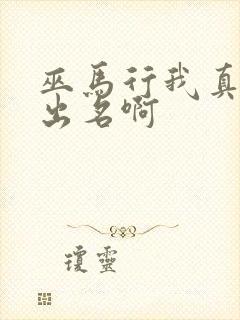 巫馬行我真
出名啊
瓊靈